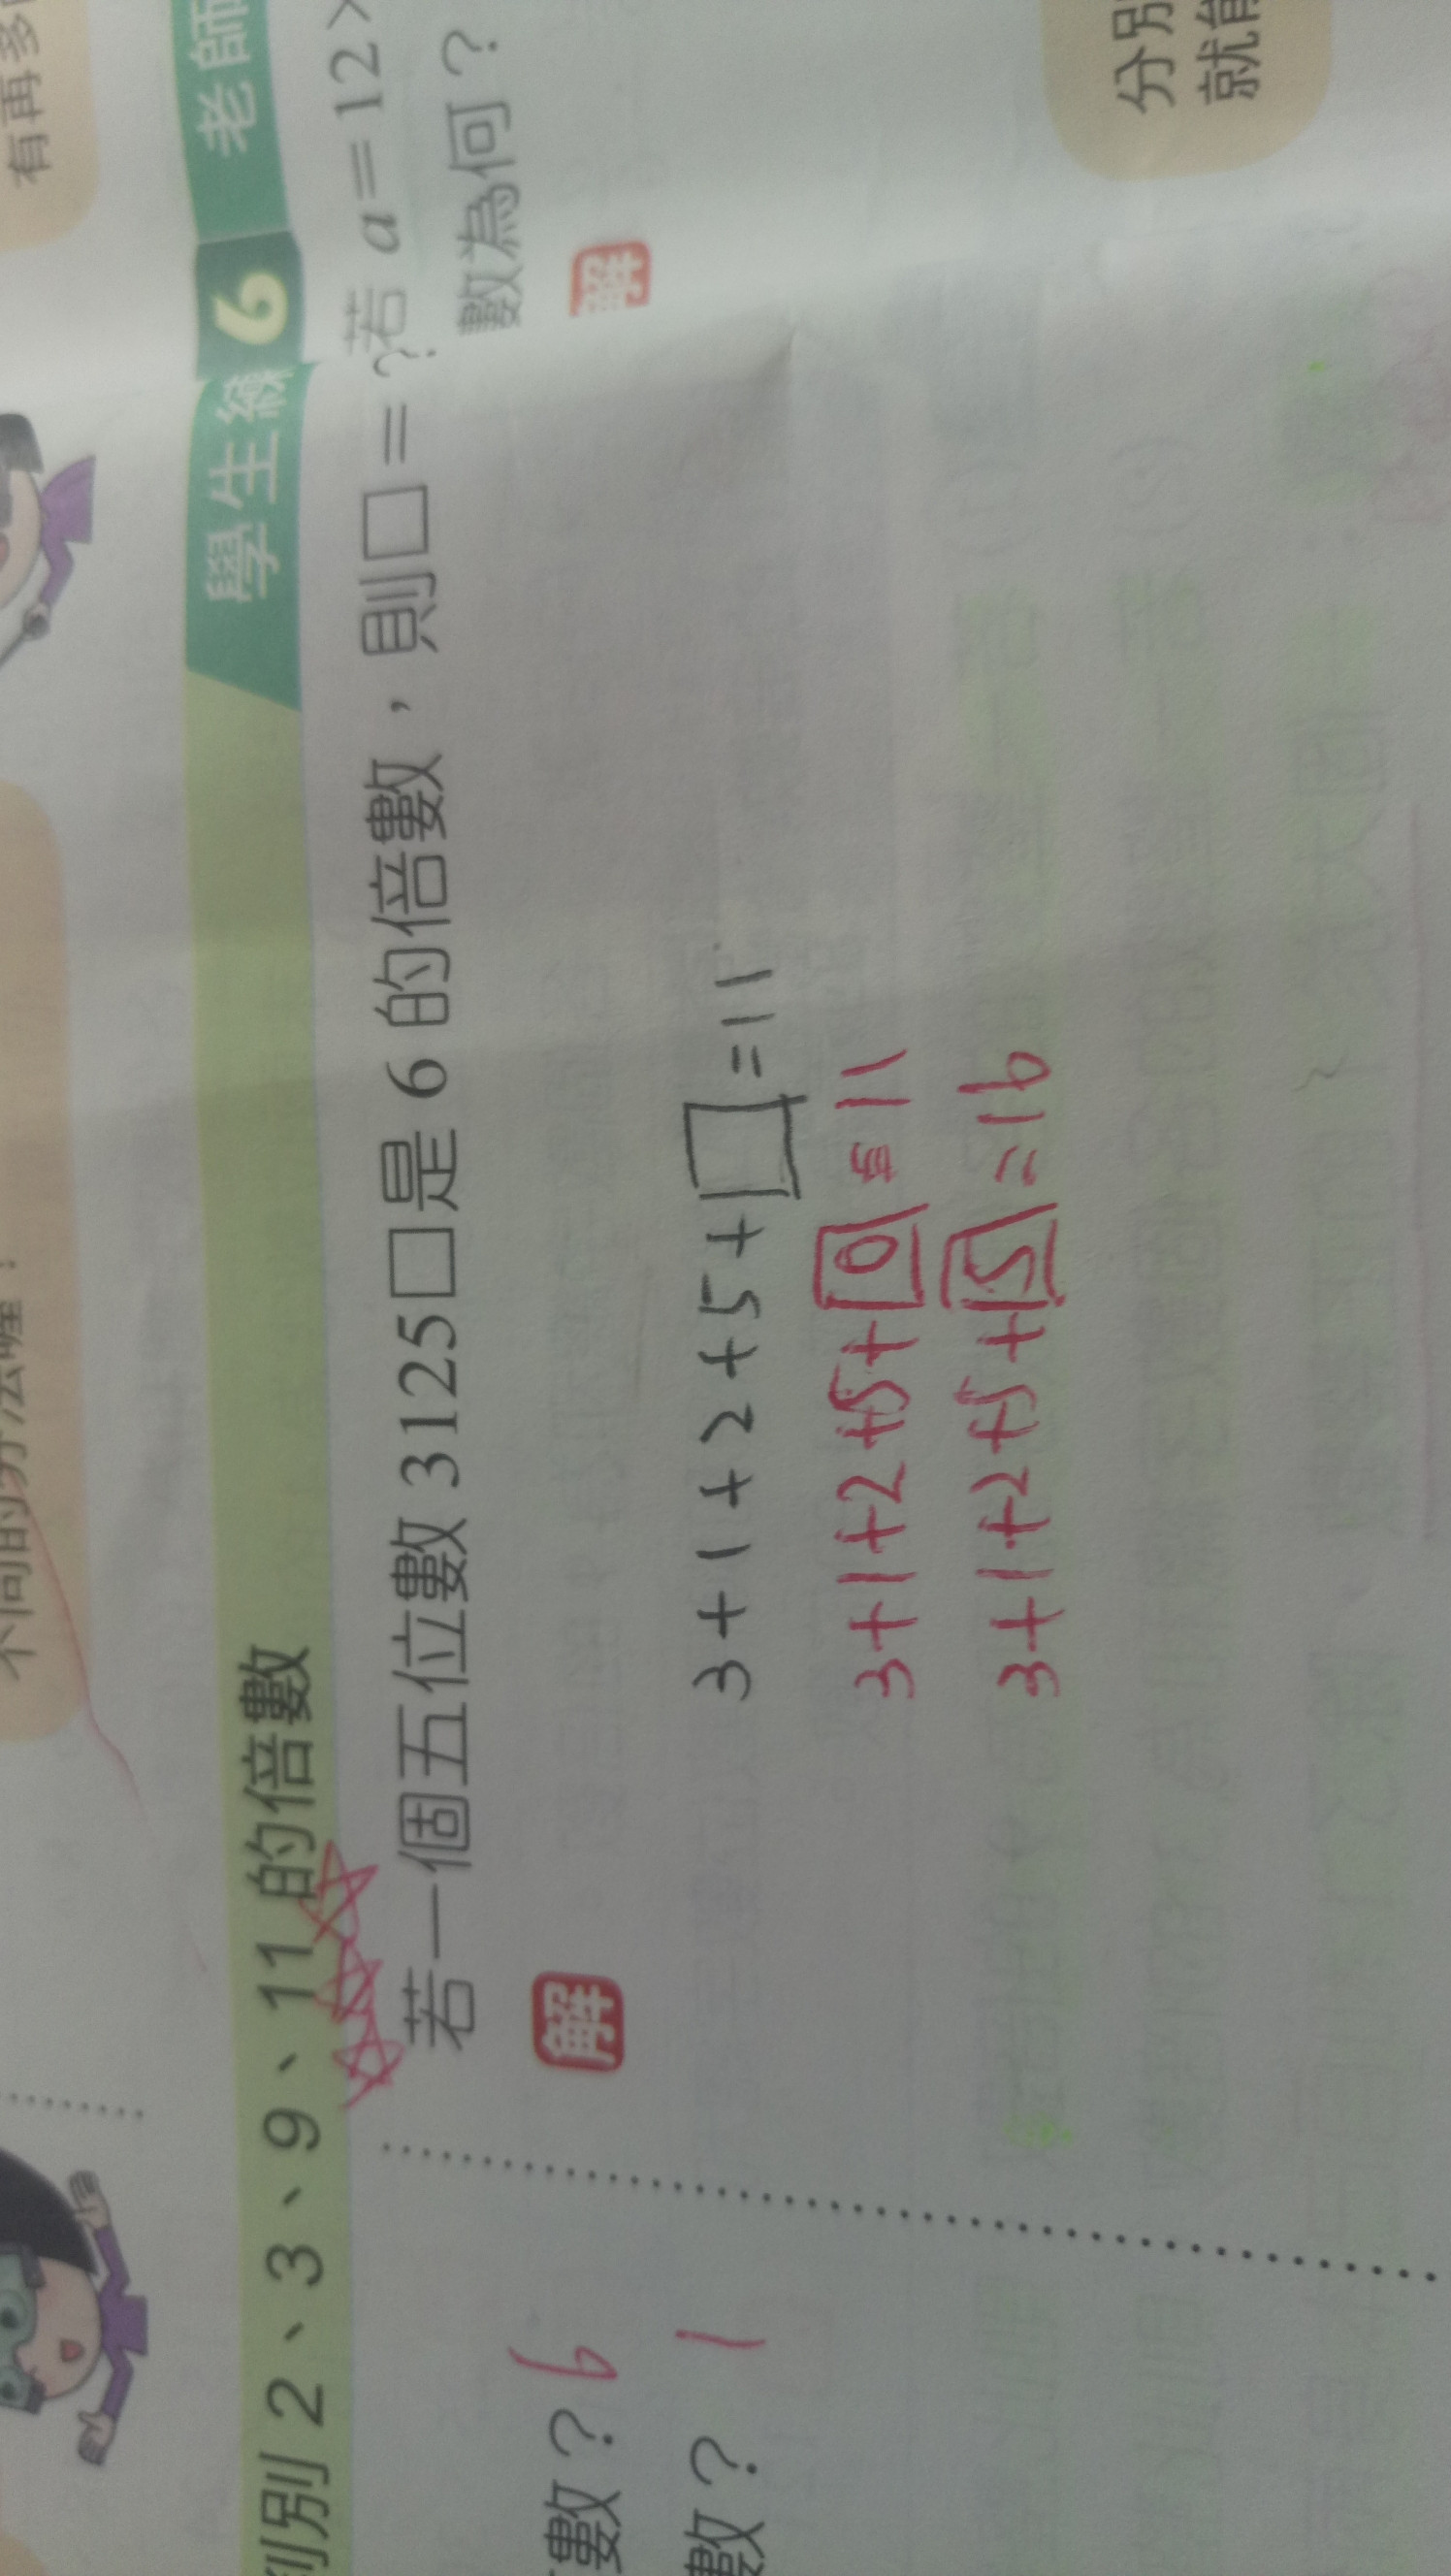 不同的方法喔！
有再多
判別 2、3、9、11 的倍數
學生練
6
老師
若一個五位數 3125□是 6 的倍數，則□=？
解
3+1+2+5+□=11
3+1+2+5+0=11
3+1+2+5+5=16
數？ 9
數？ 1
若 a=12×
數為何？
解
分別
就能